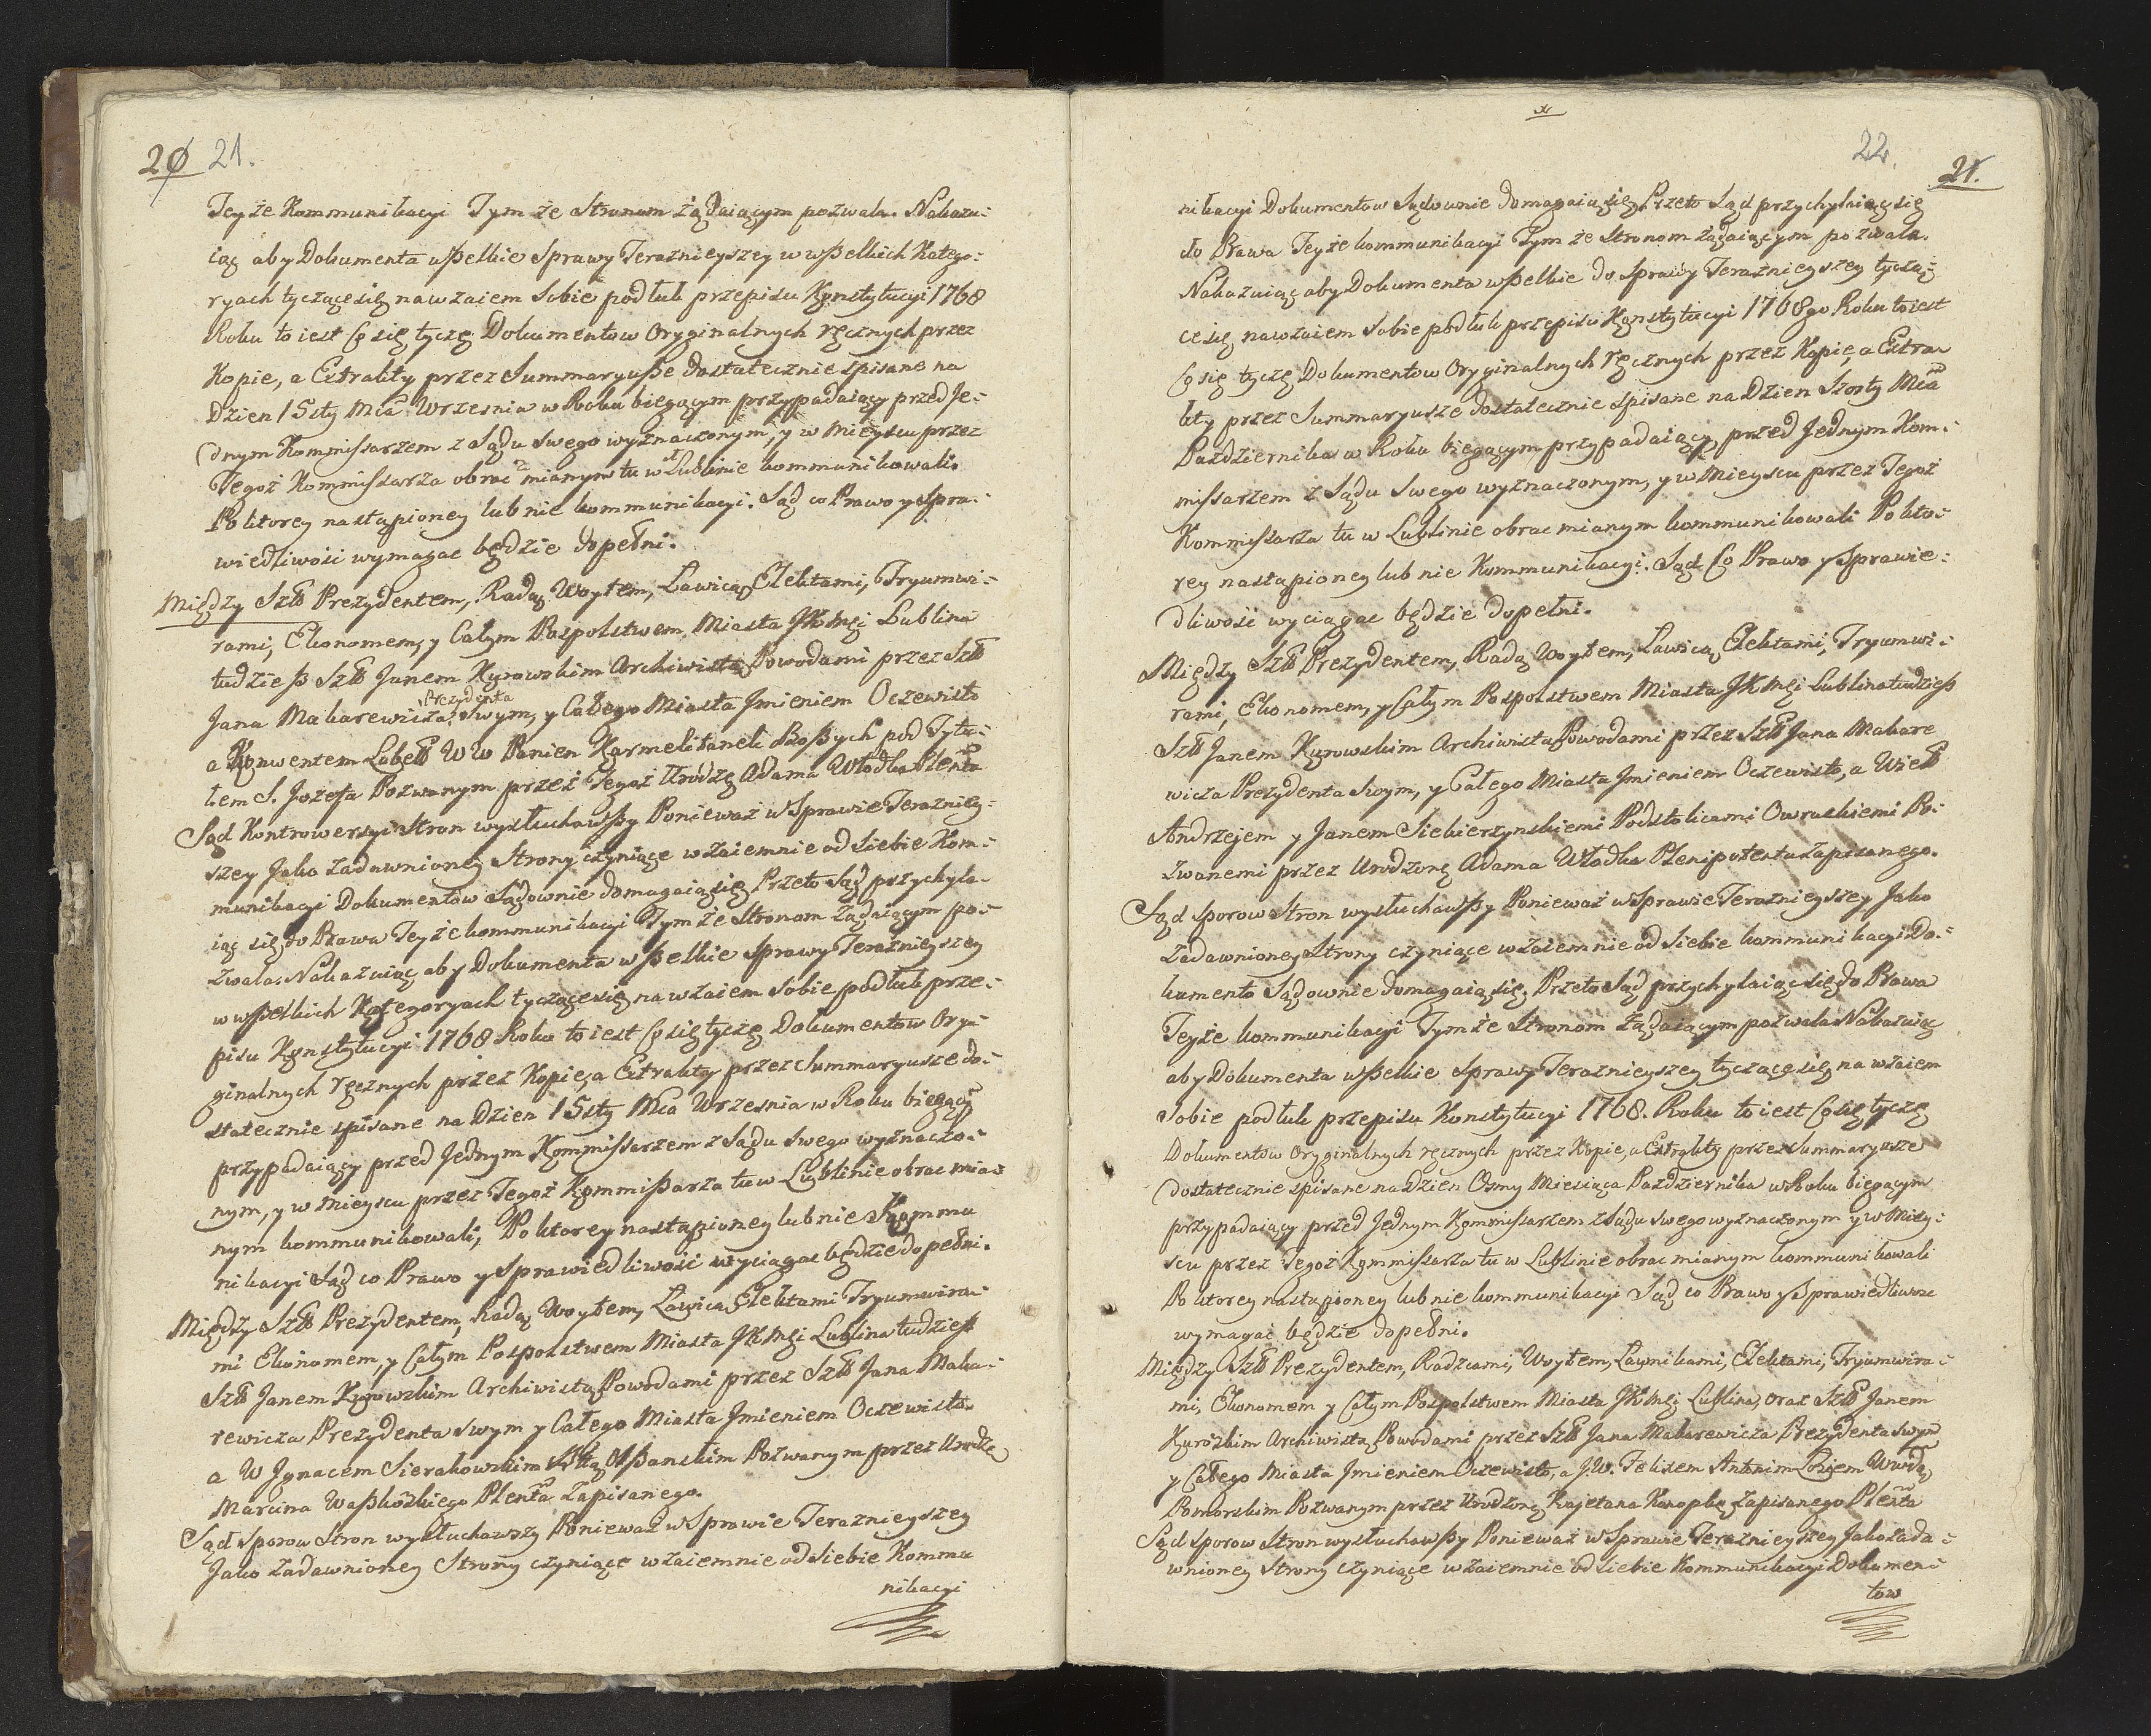 20 21.
Teyże Kommunikacyi Tym że Stronom żądaiącym pozwala. Nakazu-
iąc aby Dokumenta wszelkie Sprawy Teraznieyszey w wszelkich Katego-
ryach tyczące się nawzaiem Sobie podług przepisu Konstytucyi 1768
Roku to iest Co się tyczę Dokumentow Oryginalnych ręcznych przez
Kopie, a Extrakty przez Summaryusze dostatecznie spisane na
Dzien 15sty Mca Wrzesnia w Roku biegącym przypadaiący przed Je-
dnym Kommissarzem z Sądu Swego wyznaczonym, y w Mieyscu przez
Tegoż Kommissarza obrac mianym tu w Lublinie kommunikowali.
Po ktorey nastąpioney lub nie kommunikacyi. Sąd co Prawo y Spra-
wiedliwości wymagac będzie dopełni.
Między Szltt Prezydentem, Radą Woytem, Lawicą Elektami, Tryumwi-
rami, Ekonomem, y Całym Pospolstwem Miasta JKMci Lublina
tudziesz Szltt Janem Kurowskim Archiwistą Powodami przez Szltt
Jana Makarewicza Prezydenta Swym, y Całego Miasta Jmieniem Oczewisto
a Konwentem Lubelt WW Panien Karmelitanek Bossych pod Tytu-
łem S. Jozefa Pozwanym przez Tegoż Urodzę Adama Włodka Plenta
Sąd Kontrowersyi Stron wysłuchawszy Ponieważ w Sprawie Terazniey-
szey Jako zadawnioney Strony czyniące wzaiemnie od Siebie Kom-
munikacyi Dokumentow Sądownie domagaią się Przeto Sąd przychyla-
iąc się do Prawa Teyże kommunikacyi Tym że Stronom żądaiącym po-
zwala. Nakazuiąc aby Dokumenta wszelkie Sprawy Teraznieyszey
w wszelkich Kategoryach tyczące się na wzaiem Sobie podług prze-
pisu Konstytucyi 1768 Roku to iest Co się tyczę Dokumentow Ory-
ginalnych ręcznych przez Kopie, a Extrakty przez Summaryusze do-
statecznie spisane na Dzien 15sty Mca Wrzesnia w Roku biegący
przypadaiący przed Jednym Kommissarzem z Sądu Swego wyznaczo-
nym, y w mieyscu przez Tegoż Kommissarza tu w Lublinie obrac mia-
nym kommunikowali, Po ktorey nastąpioney lub nie Kommu
nikacyi Sąd co Prawo y Sprawiedliwość wyciągac będzie dopełni.
Między Szltt Prezydentem, Radą Woytem, Lawicą Elektami Tryumwira-
mi Ekonomem, y Całym Pospolstwem Miasta JKMci Lublina tudziesz
Szltt Janem Kurowskim Archiwistą Powodami przez Szltt Jana Maka-
rewicza Prezydenta Swym y Całego Miasta Jmieniem Oczewisto.
a W Jgnacem Sierakowskim Pozwanym przez Urodzę
Marcina Waszkoskiego Plenta Zapisanego.
Sąd Sporow Stron wysłuchawszy Ponieważ w Sprawie Teraznieyszey
Jako zadawnioney Strony czyniące wzaiemnie od Siebie Kommu
nikacyi
x
22. 21.
nikacyi Dokumentow Sądownie domagaią się Przeto Sąd przychylaiąc się
do Prawa Teyże kommunikacyi Tym że Stronom żądaiącym pozwala.
Nakazuiąc aby Dokumenta wszelkie do Sprawy Teraznieyszey tyczą-
ce się nawzaiem Sobie podług przepisu Konstytucyi 1768go Roku to iest
Co się tyczę Dokumentow Oryginalnych ręcznych przez Kopie, a Extra-
kty przez Summaryusze dostatecznie spisane na Dzien Szosty Mca
Pazdziernika w Roku biegącym przypadaiący przed Jednym Kom-
missarzem z Sądu Swego wyznaczonym, y w Mieyscu przez Tegoż
Kommissarza tu w Lublinie obrac mianym kommunikowali Po kto-
rey nastąpioney lub nie Kommunikacyi. Sąd Co Prawo y Sprawie-
dliwość wyciągac będzie dopełni.
Między Szltt Prezydentem, Radą Woytem, Lawicą Elektami, Tryumwi-
rami, Ekonomem, y Całym Pospolstwem Miasta JKMci Lublina tudziesz
Szltt Janem Kurowskim Archiwistą Powodami przez Szltt Jana Makare
wicza Prezydenta Swym, y Całego Miasta Jmieniem Oczewisto, a Wielt
Andrzejem y Janem Siekierzynskiemi Podstolicami Owruckiemi Po-
zwanemi przez Urodzonę Adama Włodka Plenipotenta Zapisanego.
Sąd Sporow Stron wysłuchawszy Ponieważ w Sprawie Teraznieyszey Jako
Zadawnioney Strony czyniące wzaiemnie od Siebie kommunikacyi Do-
kumento Sądownie domagaią się. Przeto Sąd przychylaiąc się do Prawa
Teyże kommunikacyi Tym że Stronom żądaiącym pozwala Nakazuiąc
aby Dokumenta wszelkie Sprawy Teraznieyszey tyczące się na wzaiem
Sobie podług przepisu Konstytucyi 1768. Roku to iest Co się tyczę
Dokumentow Oryginalnych ręcznych przez Kopie, a Extrakty przez Summaryusze
dostatecznie spisane na Dzien Osmy Miesiąca Pazdziernika w Roku biegącym
przypadaiący przed Jednym Kommissarzem z Sądu Swego wyznaczonym y w Miey-
scu przez Tegoż Kommissarza tu w Lublinie obrac mianym kommunikowali
Po ktorey nastąpioney lub nie kommunikacyi Sąd co Prawo y Sprawiedliwosc
wymagać będzie dopełni.
Między Szltt Prezydentem, Radzcami, Woytem, Ławnikami, Elektami, Tryumwira-
mi, Ekonomem y Całym Pospolstwem Miasta JKMci Lublina, oraz Szltt Janem
Kuroskim Archiwistą Powodami przez Szltt Jana Makarewicza Prezydenta Swym
y Całego Miasta Jmieniem Oczewisto, a J.W. Felixem Antonim Łosiem Wwdą
Pomorskim Pozwanym przez Urodzonę Kajetana Konopkę Zapisanego Plenta
Sąd Sporow Stron wysłuchawszy Ponieważ w Sprawie Teraznieyszey Jako Zada-
wnioney Strony czyniące wzaiemnie od Siebie Kommunikacyi Dokumen-
tow